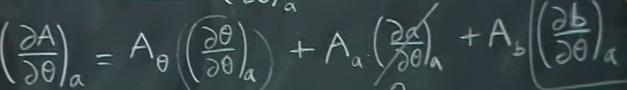 (∂A/∂θ)_a = A_θ (∂θ/∂θ)_a + A_a (∂a/∂θ)_a + A_b (∂b/∂θ)_a